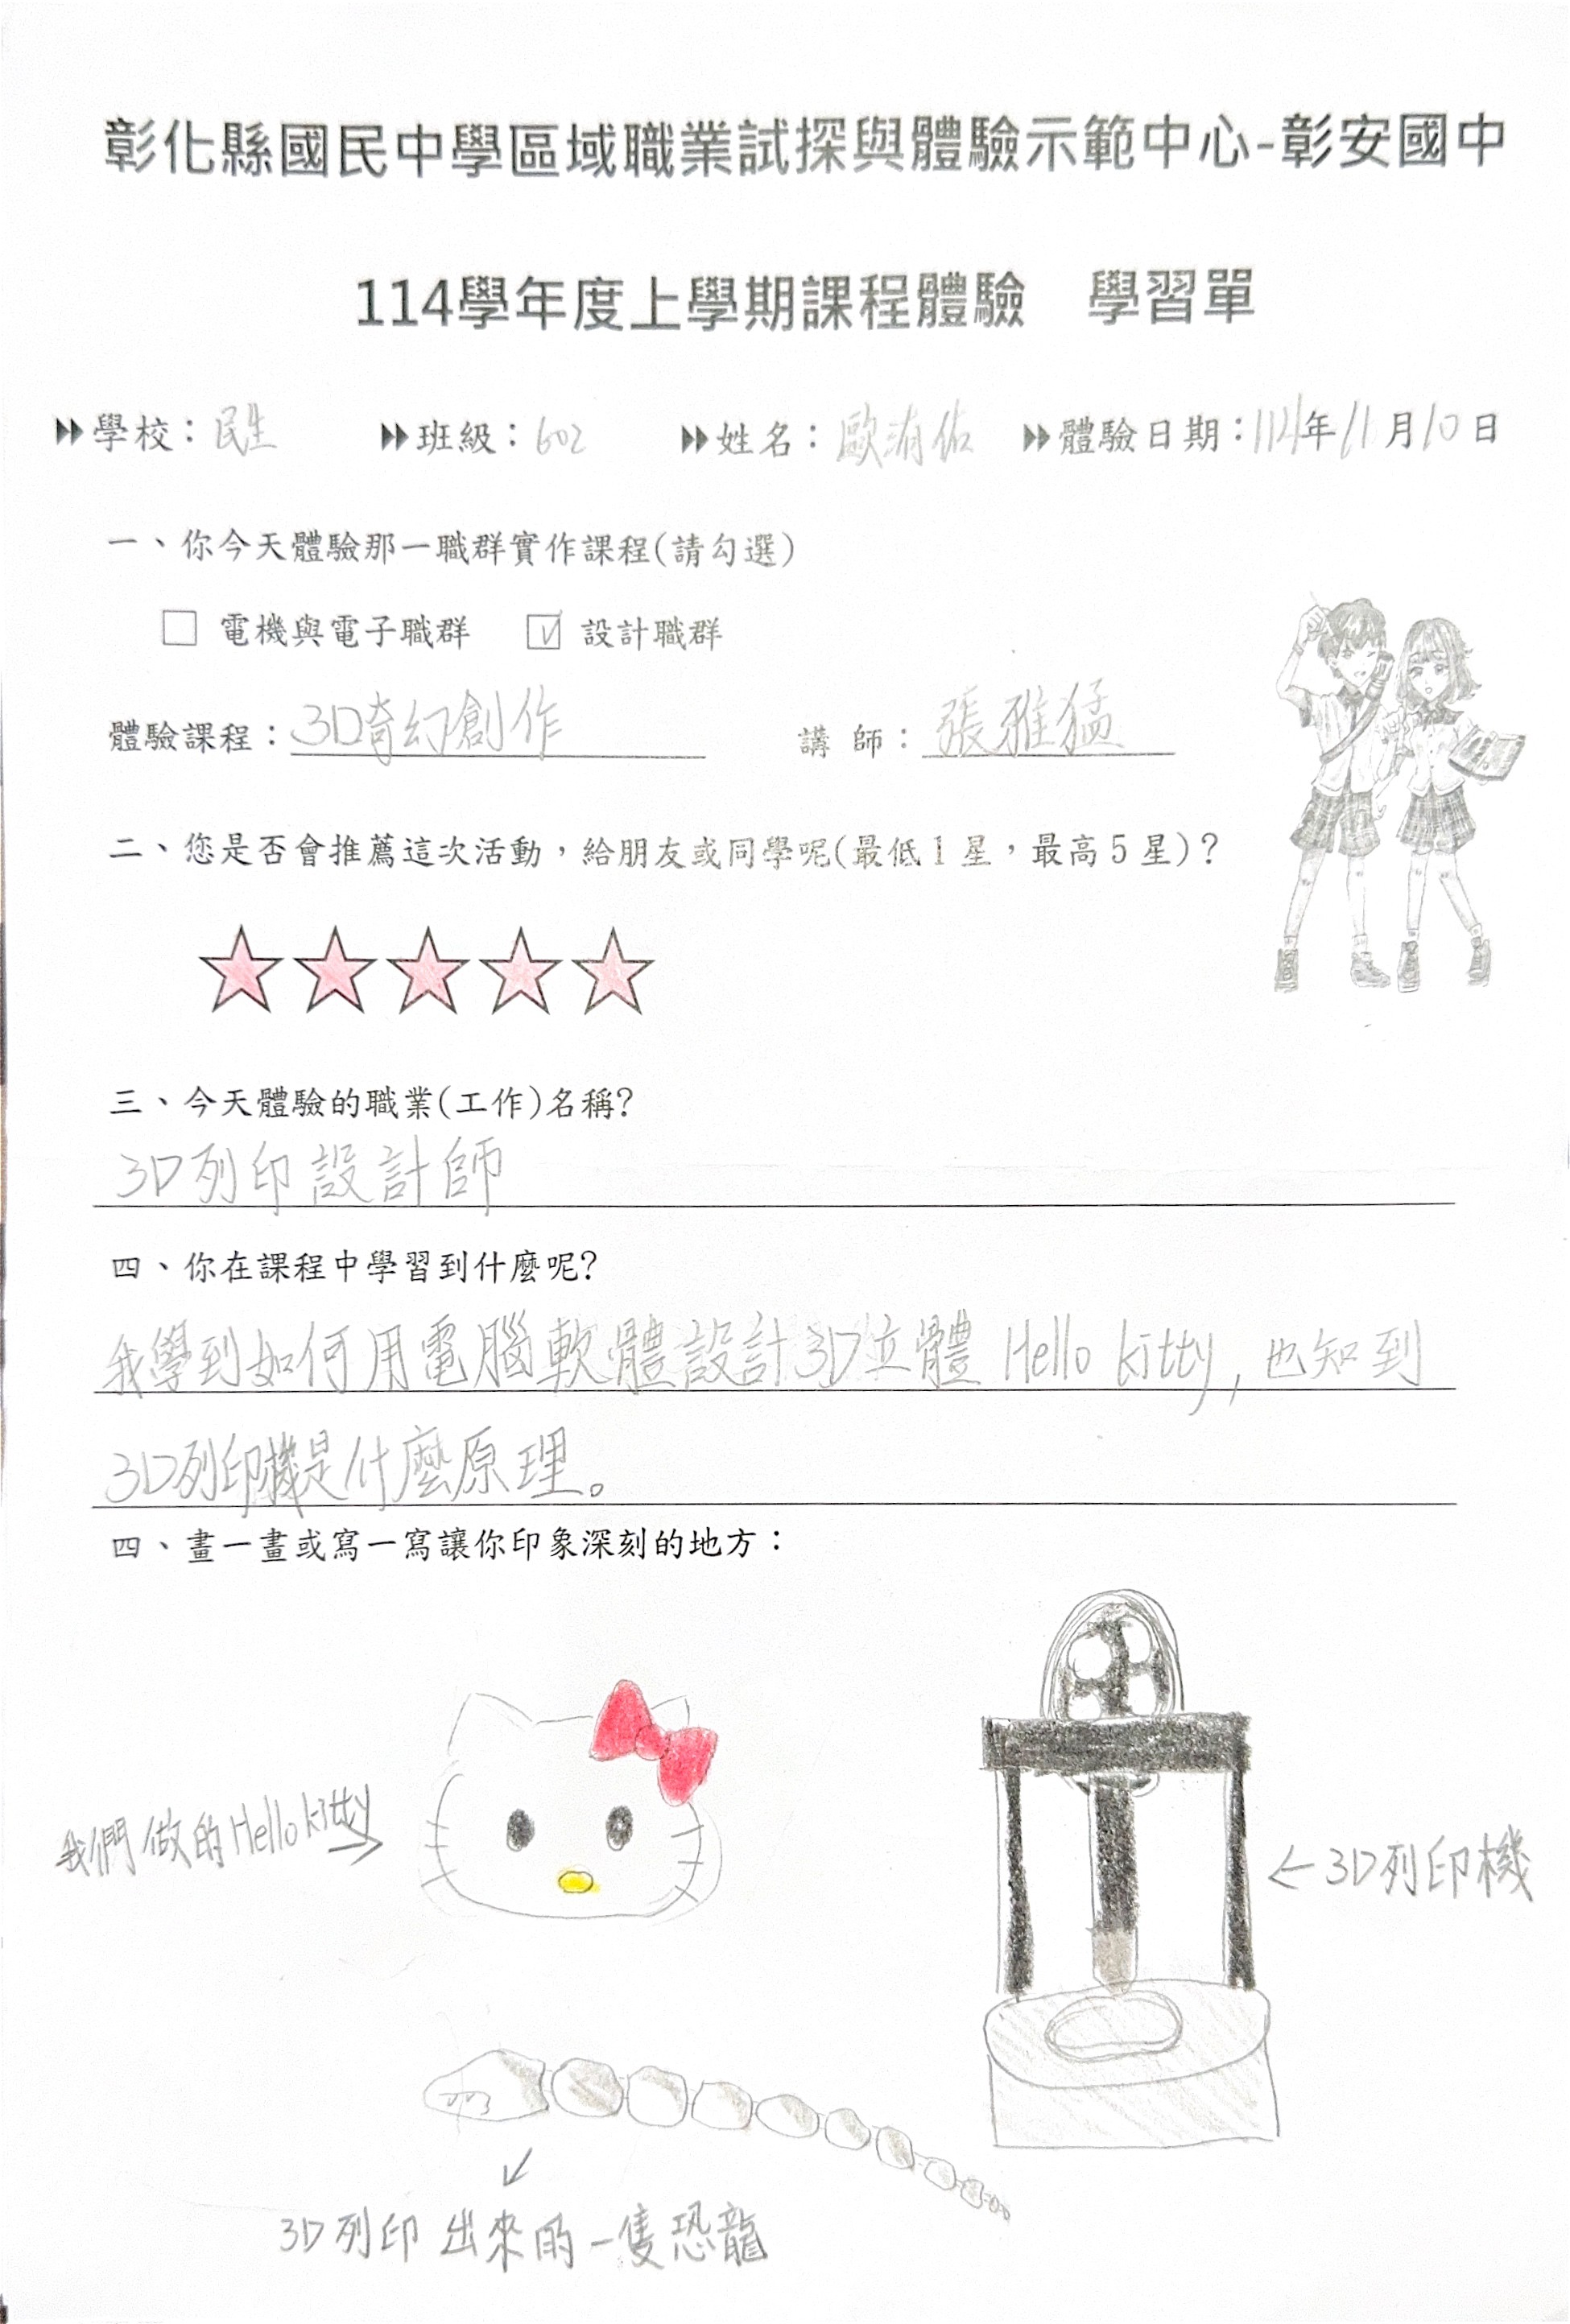 彰化縣國民中學區域職業試探與體驗示範中心-彰安國中
114學年度上學期課程體驗 學習單
學校：民生 班級：602 姓名：歐洧佑 體驗日期：114年11月10日
一、你今天體驗那一職群實作課程(請勾選)
□ 電機與電子職群 ☑ 設計職群
體驗課程：3D奇幻創作 講 師：張雅猛
二、您是否會推薦這次活動，給朋友或同學呢(最低1星，最高5星)？
三、今天體驗的職業(工作)名稱?
3D列印設計師
四、你在課程中學習到什麼呢?
我學到如何用電腦軟體設計3D立體 Hello kitty, 也知到
3D列印機是什麼原理。
四、畫一畫或寫一寫讓你印象深刻的地方：
我們做的Hello kitty
3D列印機
3D列印出來的一隻恐龍